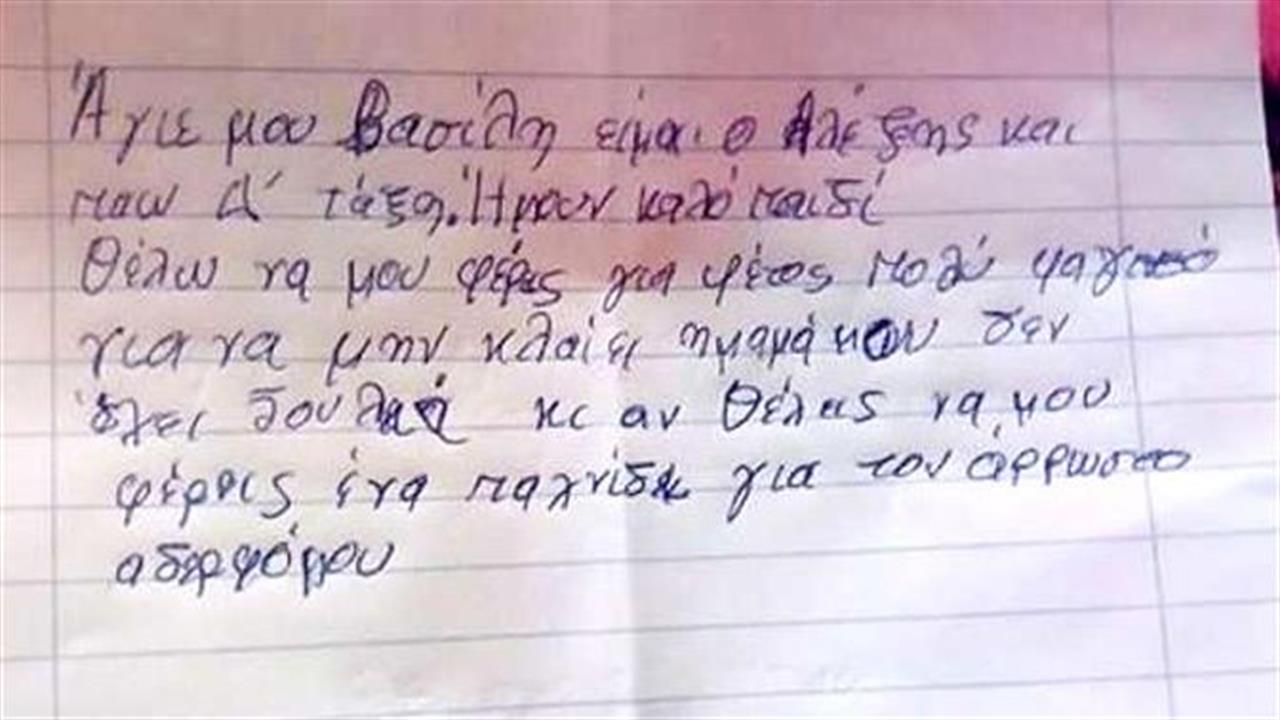 Άγιε μου Βασίλη είμαι ο Αλέξης και
παω Α΄ τάξη. Ήμουν καλό παιδί
Θέλω να μου φέρεις για φέτος πολύ φαγητό
για να μην κλαίει η μαμά μου δεν
έχει δουλειά κι αν θέλεις να μου
φέρεις ένα παχνίδι για τον άρρωστο
αδερφό μου